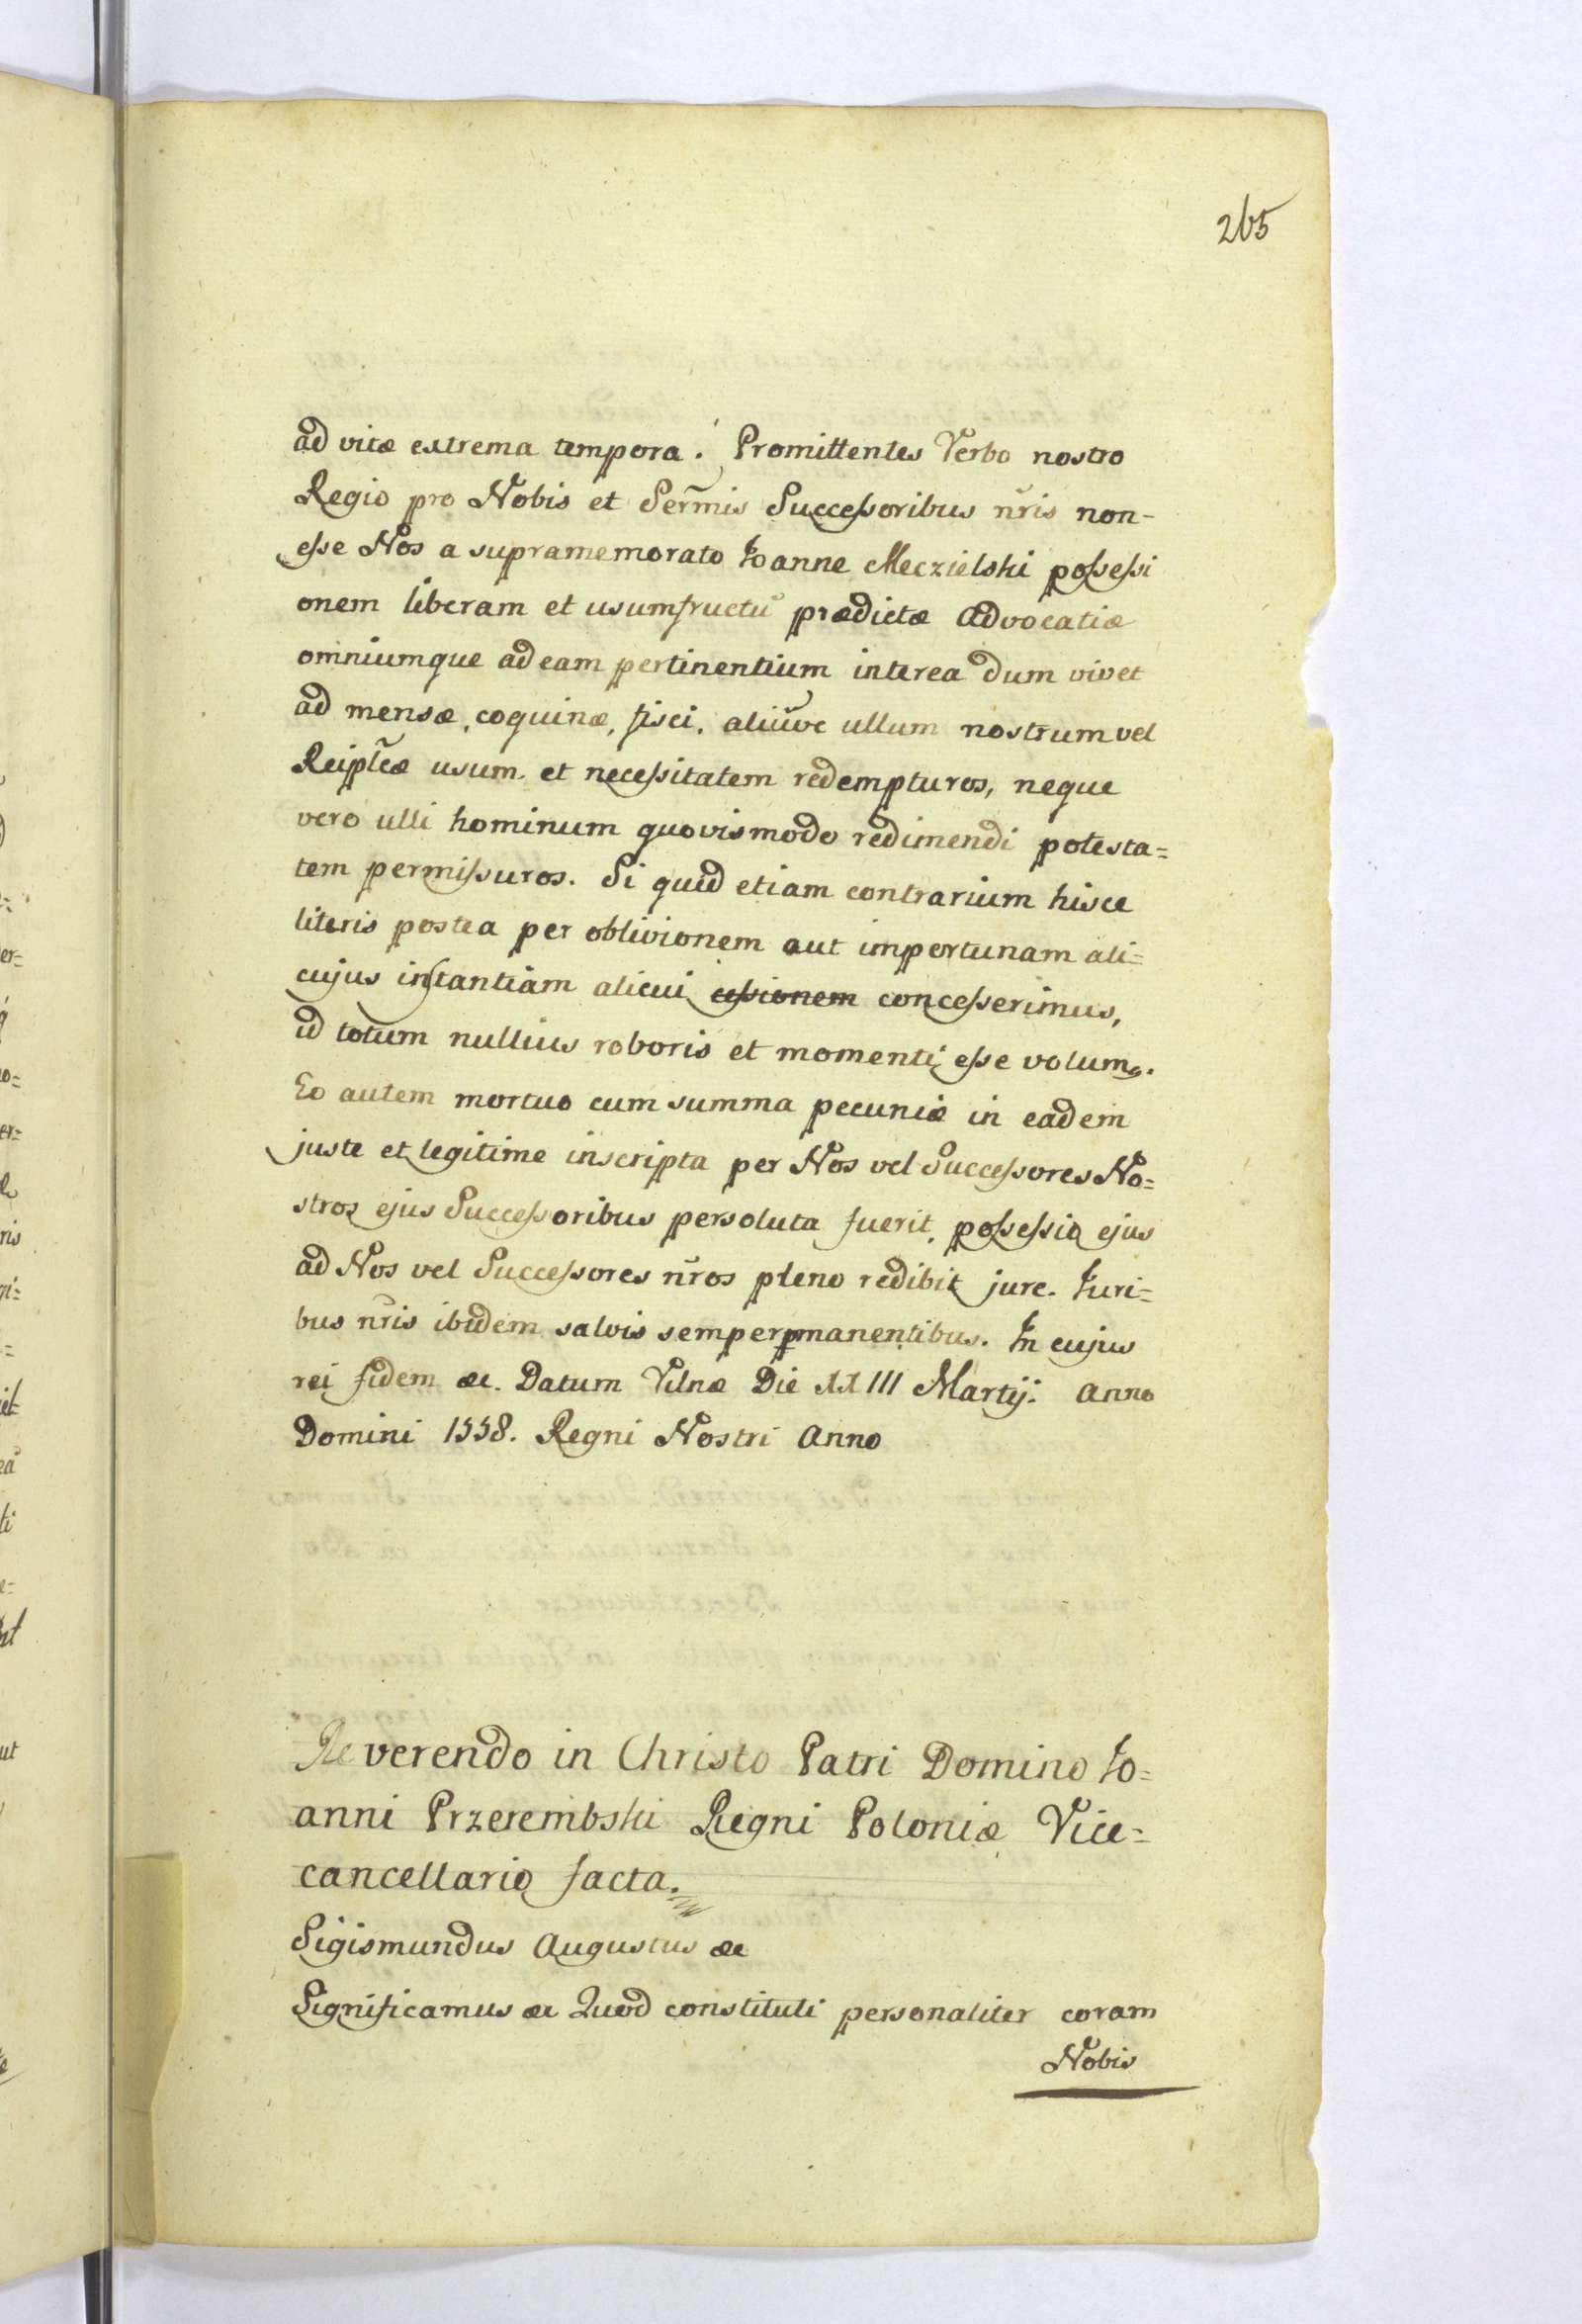 265
ad vitæ extrema tempora. Promittentes Verbo nostro
Regio pro Nobis et Serm̃is Successoribus nr̃is non-
esse Nos a supramemorato Ioanne Meczielski possessi
onem liberam et usumfructũ prædictæ advocatiæ
omniumque ad eam pertinentium interea dum vivet
ad mensæ, coquinæ, fisci, aliũve ullum nostrum vel
Reiplc̃æ usum et necessitatem redempturos, neque
vero ulli hominum quovismodo redimendi potesta=
tem permissuros. Si quid etiam contrarium hisce
literis postea per oblivionem aut importunam ali=
cujus instantiam alicui cessionem concesserimus,
id totum nullius roboris et momenti esse volum9.
Eo autem mortuo cum summa pecuniæ in eadem
juste et legitime inscripta per Nos vel Successores No=
stros ejus Successoribus persoluta fuerit, possessio ejus
ad Nos vel Successores nr̃os pleno redibit jure. Iuri=
bus nr̃is ibidem salvis semper pmanentibus. In cujus
rei fidem æc. Datum Vilnæ Die XXIII Martij. Anno
Domini 1558. Regni Nostri Anno
Reverendo in Christo Patri Domino Io=
anni Przerembski Regni Poloniæ Vice=
cancellario facta.
Sigismundus Augustus æc
Significamus æc Quod constituti personaliter coram
Nobis